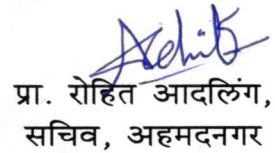 प्रा. रोहित आदलिंग,
सचिव, अहमदनगर